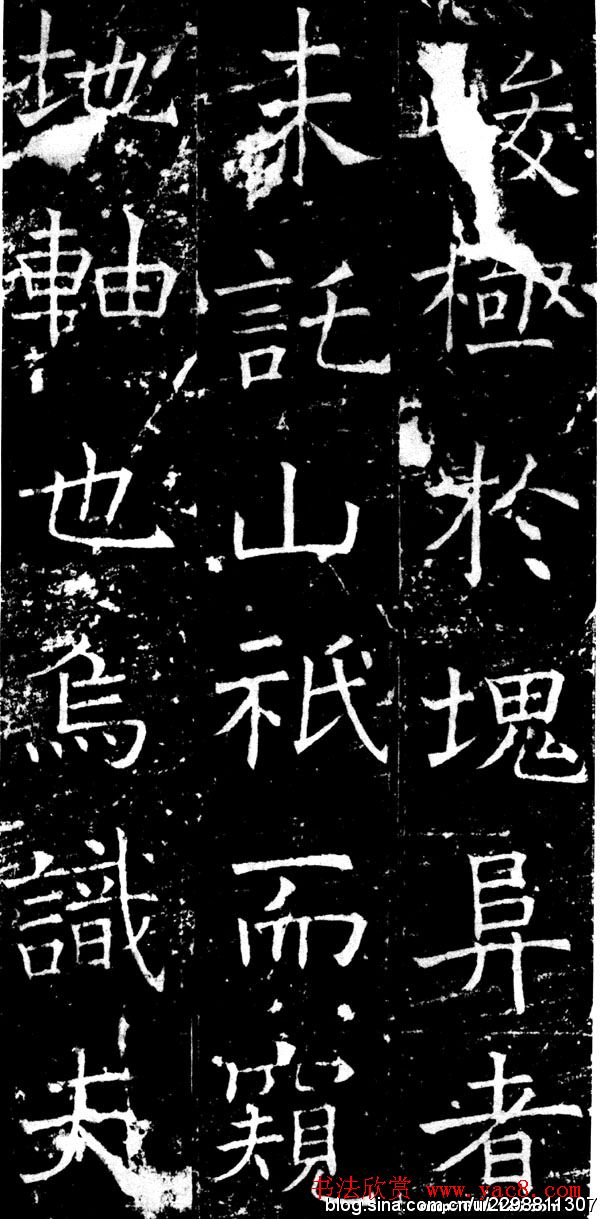 峻極於塊阜者
未託山祇而窺
地軸也焉識夫
书法欣赏 www.yac8.com
blog.sina.com.cn/u/2298811307